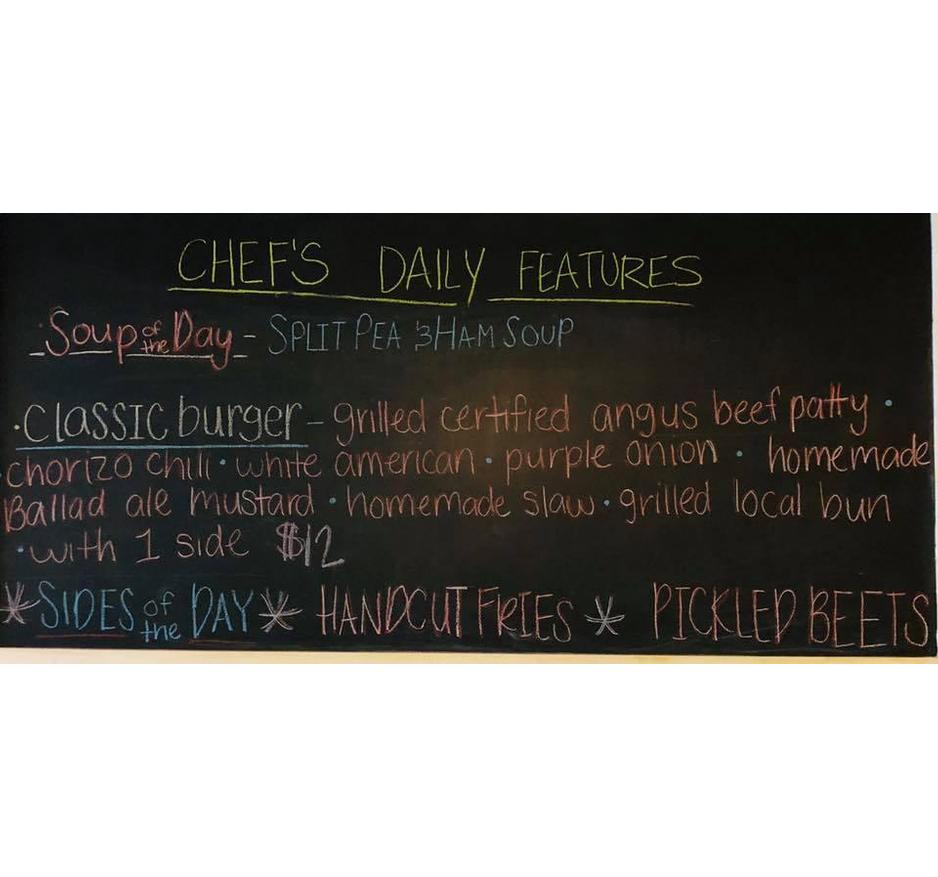 CHEF'S DAILY FEATURES
Soup of the Day - SPLIT PEA & HAM SOUP
· CLASSIC burger - grilled certified angus beef patty ·
chorizo chili · white american · purple onion · homemade
Ballad ale mustard · homemade slaw · grilled local bun
· with 1 side $12
* SIDES of the DAY * HANDCUT FRIES * PICKLED BEETS